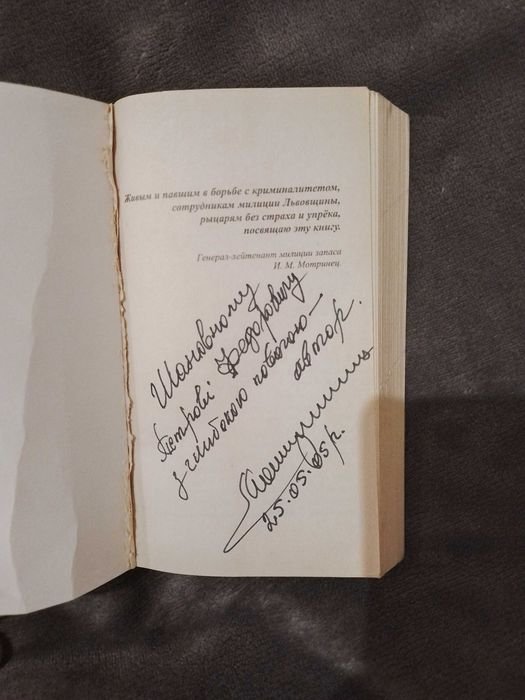 Живым и павшим в борьбе с криминалитетом,
сотрудникам милиции Львовщины,
рыцарям без страха и упрёка,
посвящаю эту книгу.
Генерал-лейтенант милиции запаса
И. М. Мотринец.
Шановному
Петрові Федоровичу
з глибокою повагою —
автор.
25.05.05р.